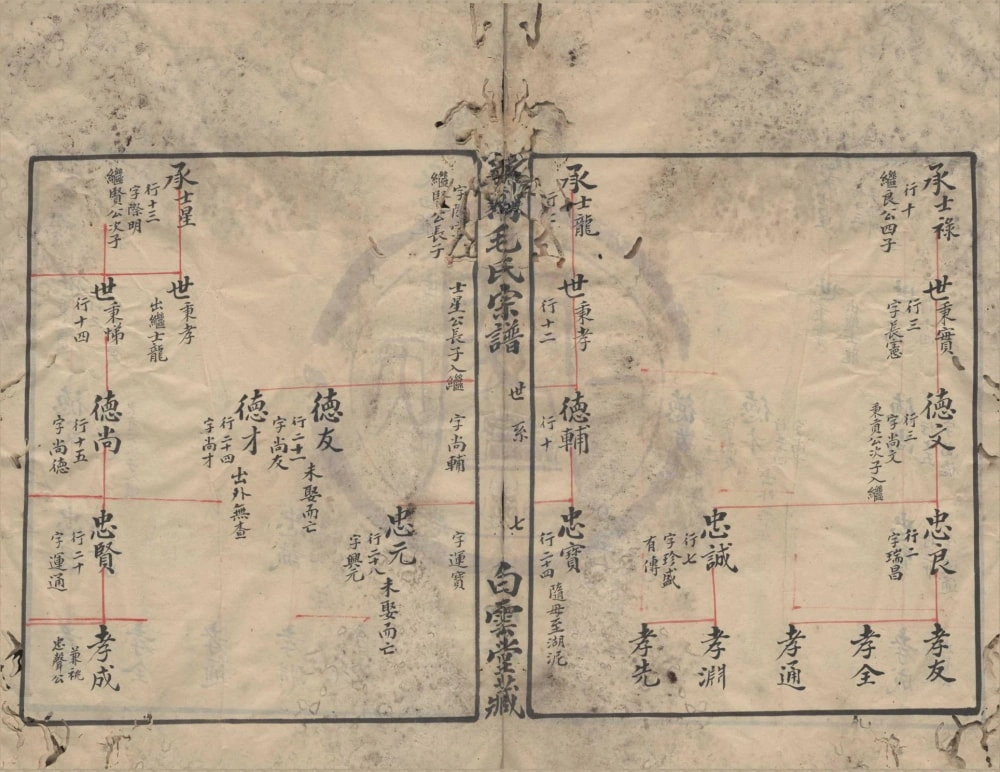 承士祿
行十
繼良公四子
世秉實
行三
字長憲
德文
行三
字尚文
秉貴公次子入繼
忠良
行二
字瑞昌
孝友
孝全
孝通
忠誠
行七
字珍盛
有傳
孝淵
孝先
承士龍
世秉孝
行十二
德輔
行十
忠寶
行二十四
隨母至湖泥
毛氏宗譜
世系
七
白雲堂藏
繼賢公長子
士星公長子入繼
字尚輔
字運寶
忠元
行二十八
字興元
未娶而亡
德友
行二十一
字尚友
未娶而亡
德才
行二十四
字尚才
出外無查
承士星
行十三
字際明
繼賢公次子
世秉孝
出繼士龍
世秉悌
行十四
德尚
行十五
字尚德
忠賢
行二十
字運通
孝成
兼祧
忠聲公